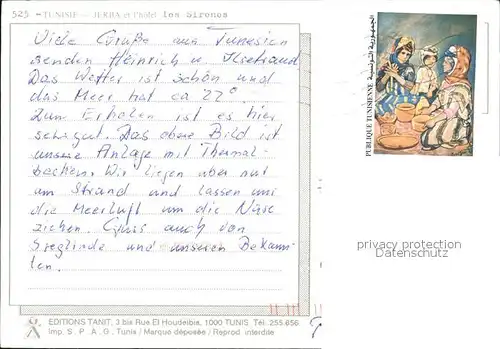 525 - TUNISIE - JERBA et l'hôtel les Sirenes
Viele Grüße aus Tunesien
senden Heinrich u.
Das Wetter ist schön und
das Meer hat ca 22°.
Zum Erholen ist es hier
sehr gut. Das obere Bild ist
unsere Anlage mit Thermal-
becken. Wir liegen aber nur
am Strand und lassen uns
die Meerluft um die Nase
ziehen. Gruss auch von
Sieglinde und unseren Bekann-
ten.
EDITIONS TANIT, 3 bis Rue El Houdeibia, 1000 TUNIS Tél: 255.656
Imp. S.P.A.G. Tunis / Marque déposée / Reprod interdite
PUBLIQUE TUNISIENNE الجمهورية التونسية
privacy protection
Datenschutz